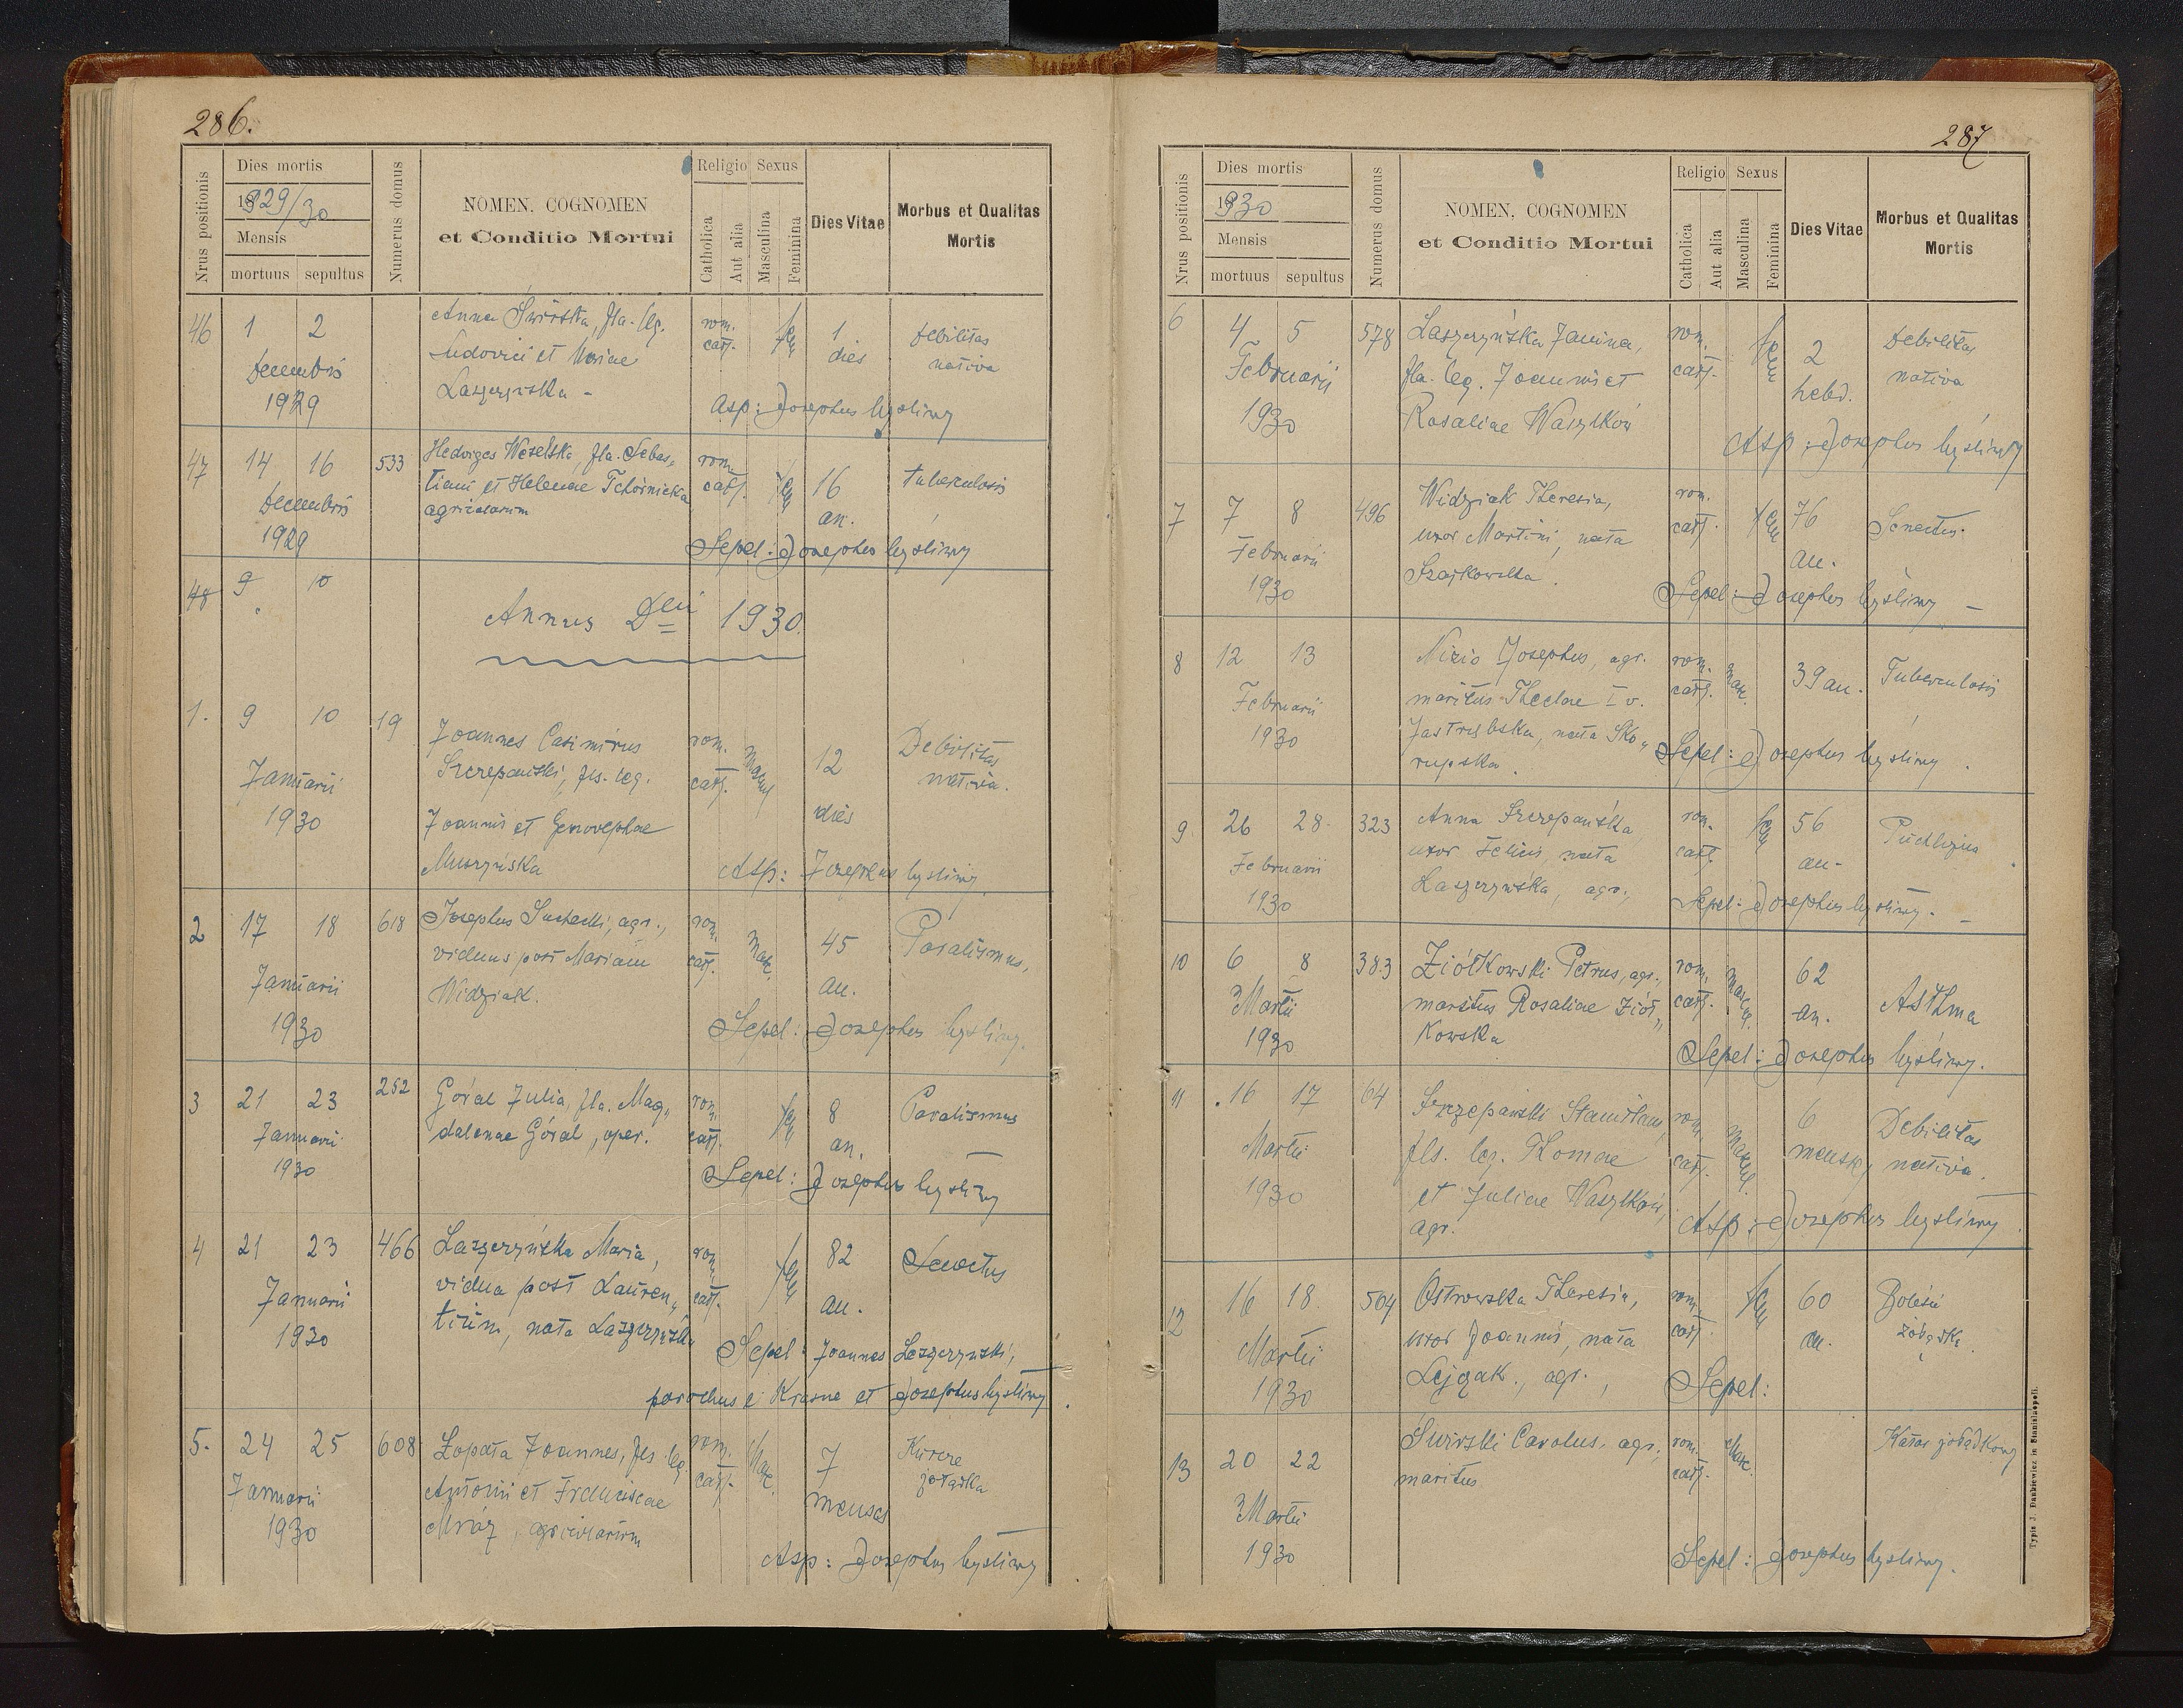 286.
Nrus positionis
Dies mortis
1929/30
Mensis
mortuus sepultus
Numerus domus
NOMEN, COGNOMEN
et Conditio Mortui
Religio
Catholica
Aut alia
Sexus
Masculina
Feminina
Dies Vitae
Morbus et Qualitas
Mortis
46 1 2 Anna Świrska, fla. leg. rom. fem 1 Debilitas
Decembris Ludovici et Mariae cath. dies nativa
1929 Laszczyńska -
Asp: Josephus Łyśliwy
47 14 16 533 Hedviges Weselska, fla. Sebas„ rom. fem 16 tuberculosis
Decembris tiani et Helenae Tchórnicka cath. an.
1929 agricolarum
Sepel: Josephus Łyśliwy
48 9 10
Annus Dni 1930.
1. 9 10 19 Joannes Casimirus rom. mascul 12 Debilitas
Januarii Szczepański, fls. leg. cath. dies nativa.
1930 Joannis et Genovephae
Muszyńska
Asp: Josephus Łyśliwy
2 17 18 618 Josephus Suchecki, agr., rom. masc. 45 Paralismus,
Januarii viduus post Mariam cath. an.
1930 Widziak.
Sepel: Josephus Łyśliwy.
3 21 23 252 Góral Julia, fla. Mag„ rom. fem 8 Paralismus
Januarii dalenae Góral, oper. cath. an.
1930
Sepel: Josephus Łyśliwy
4 21 23 466 Laszczyńska Maria, rom. fem 82 Senectus
Januarii vidua post Lauren„ cath. an.
1930 tium, nata Laszczyńska
Sepel: Joannes Leszczyński,
parochus e Krasne et Josephus Łyśliwy.
5. 24 25 608 Łopata Joannes, fls. leg. rom. Masc. 7 Kurcze
Januarii Antonii et Franciscae cath. menses żołądka
1930 Mróz, agricolarum
Asp: Josephus Łyśliwy
287
Nrus positionis
Dies mortis
1930
Mensis
mortuus sepultus
Numerus domus
NOMEN, COGNOMEN
et Conditio Mortui
Religio
Catholica
Aut alia
Sexus
Masculina
Feminina
Dies Vitae
Morbus et Qualitas
Mortis
6 4 5 578 Laszczyńska Janina, rom. fem 2 Debilitas
Februarii fla. leg. Joannis et cath. hebd. nativa
1930 Rosaliae Wasylków
Asp: Josephus Łyśliwy
7 7 8 496 Widziak Theresia, rom. fem 76 Senectus.
Februarii uxor Martini, nata cath. an.
1930 Szajkowska.
Sepel: Josephus Łyśliwy -
8 12 13 Nizio Josephus, agr. rom. masc. 39 an. Tuberculosis
Februarii maritus Theclae I v. cath.
1930 Jastrzębska, nata Sko„
rupska.
Sepel: Josephus Łyśliwy.
9. 26 28. 323 Anna Szczepańska rom. fem 56 Puchlina
Februarii uxor Felicis, nata cath. an.
1930 Laszczyńska, agr.,
Sepel: Josephus Łyśliwy. -
10 6 8 383 Ziółkowski Petrus, agr., rom. mascul. 62 Asthma
Martii maritus Rosaliae Ziół„ cath. an.
1930 kowska
Sepel: Josephus Łyśliwy.
11 16 17 64 Szczepański Stanislaus, rom. mascul. 6 Debilitas
Martii fls. leg. Thomae cath. menses nativa.
1930 et Juliae Wasylków,
agr.
Asp: Josephus Łyśliwy.
12 16 18 504 Ostrowska Theresia, rom. fem 60 Boleści
Martii uxor Joannis, nata cath. an. żołądka
1930 Lejzak., agr.,
Sepel:
13 20 22 Świrski Carolus, agr., rom. Masc. Katar żołądkowy
Martii maritus cath.
1930
Sepel: Josephus Łyśliwy.
Typis J. Dankiewicz in Stanislaopoli.